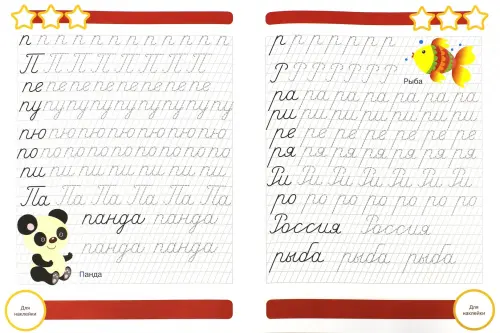 п п п п п п п п
П П П П П П П П
пе пе пе пе пе пе пе пе
пу пу пу пу пу пу пу пу пу
пю пю пю пю пю пю пю
по по по по по по по по
пи пи пи пи пи пи пи
Па Па Па Па Па Па
панда панда
панда панда
Панда
Для
наклейки
р р р р р р р
Р Р Р Р Р Р Р
Рыба
ра ра ра ра ра ра ра
ри ри ри ри ри ри ри
ре ре ре ре ре ре ре
ря ря ря ря ря ря ря
Ри Ри Ри Ри Ри Ри
ро ро ро ро ро ро ро
Россия Россия
рыба рыба рыба
Для
наклейки